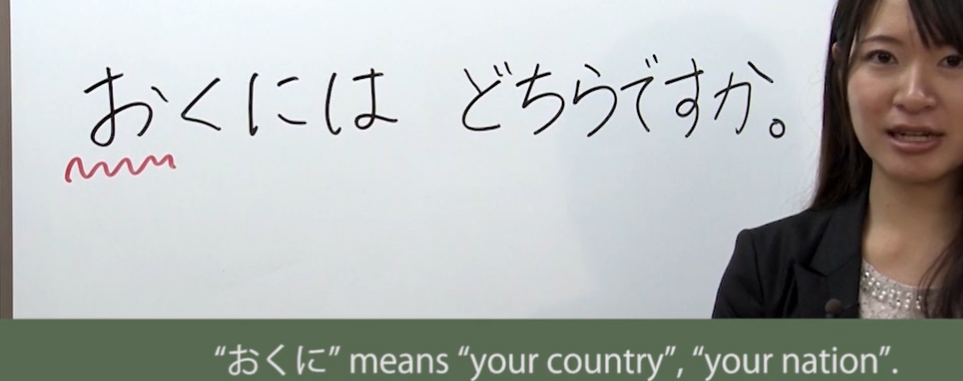 おくには どちらですか。
“おくに” means “your country”, “your nation”.